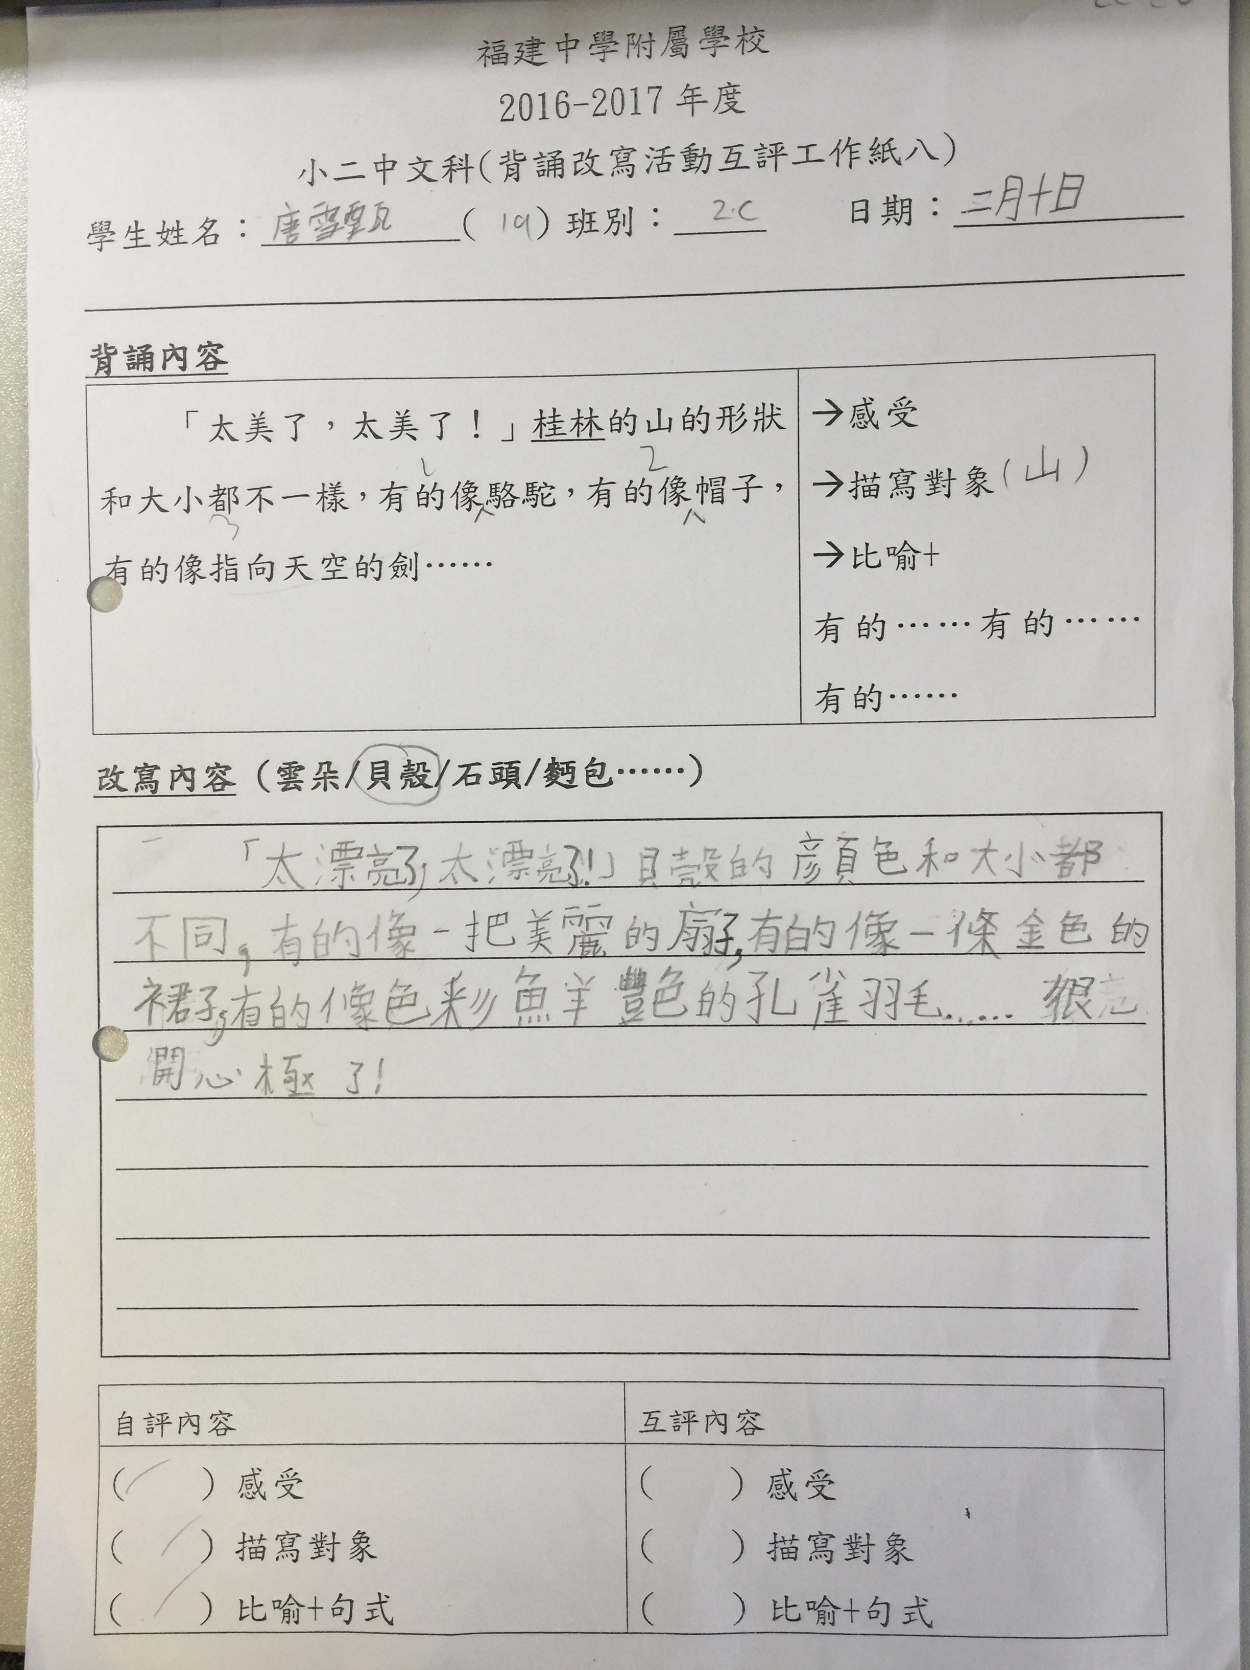 福建中學附屬學校
2016-2017 年度
小二中文科(背誦改寫活動互評工作紙八)
學生姓名：唐雪甄(19)班別：2.C 日期：二月十日
背誦內容
「太美了，太美了！」桂林的山的形狀
和大小都不一樣，有的像駱駝，有的像帽子，
有的像指向天空的劍……
1
2
3
→感受
→描寫對象(山)
→比喻+
有的……有的……
有的……
改寫內容（雲朵/貝殼/石頭/麪包……）
「太漂亮了,太漂亮了!」貝殼的顏色和大小都
不同,有的像一把美麗的扇子,有的像一條金色的
裙子,有的像色彩魚羊豐色的孔雀羽毛......
開心極了!
自評內容
(✓)感受
(✓)描寫對象
(✓)比喻+句式
互評內容
( )感受
( )描寫對象
( )比喻+句式